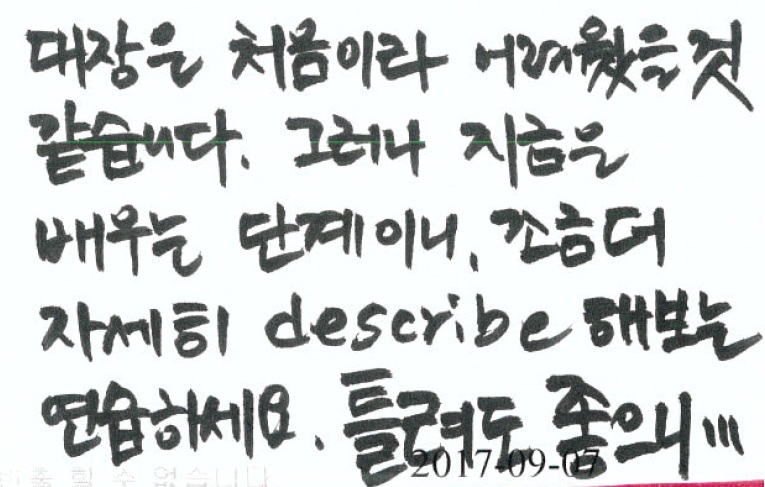 대장은 처음이라 어려웠을 것
같습니다. 그러나 지금은
배우는 단계이니, 조금더
자세히 describe 해보는
연습하세요. 틀려도 좋으니...
2017-09-07
출 할 수 없습니다